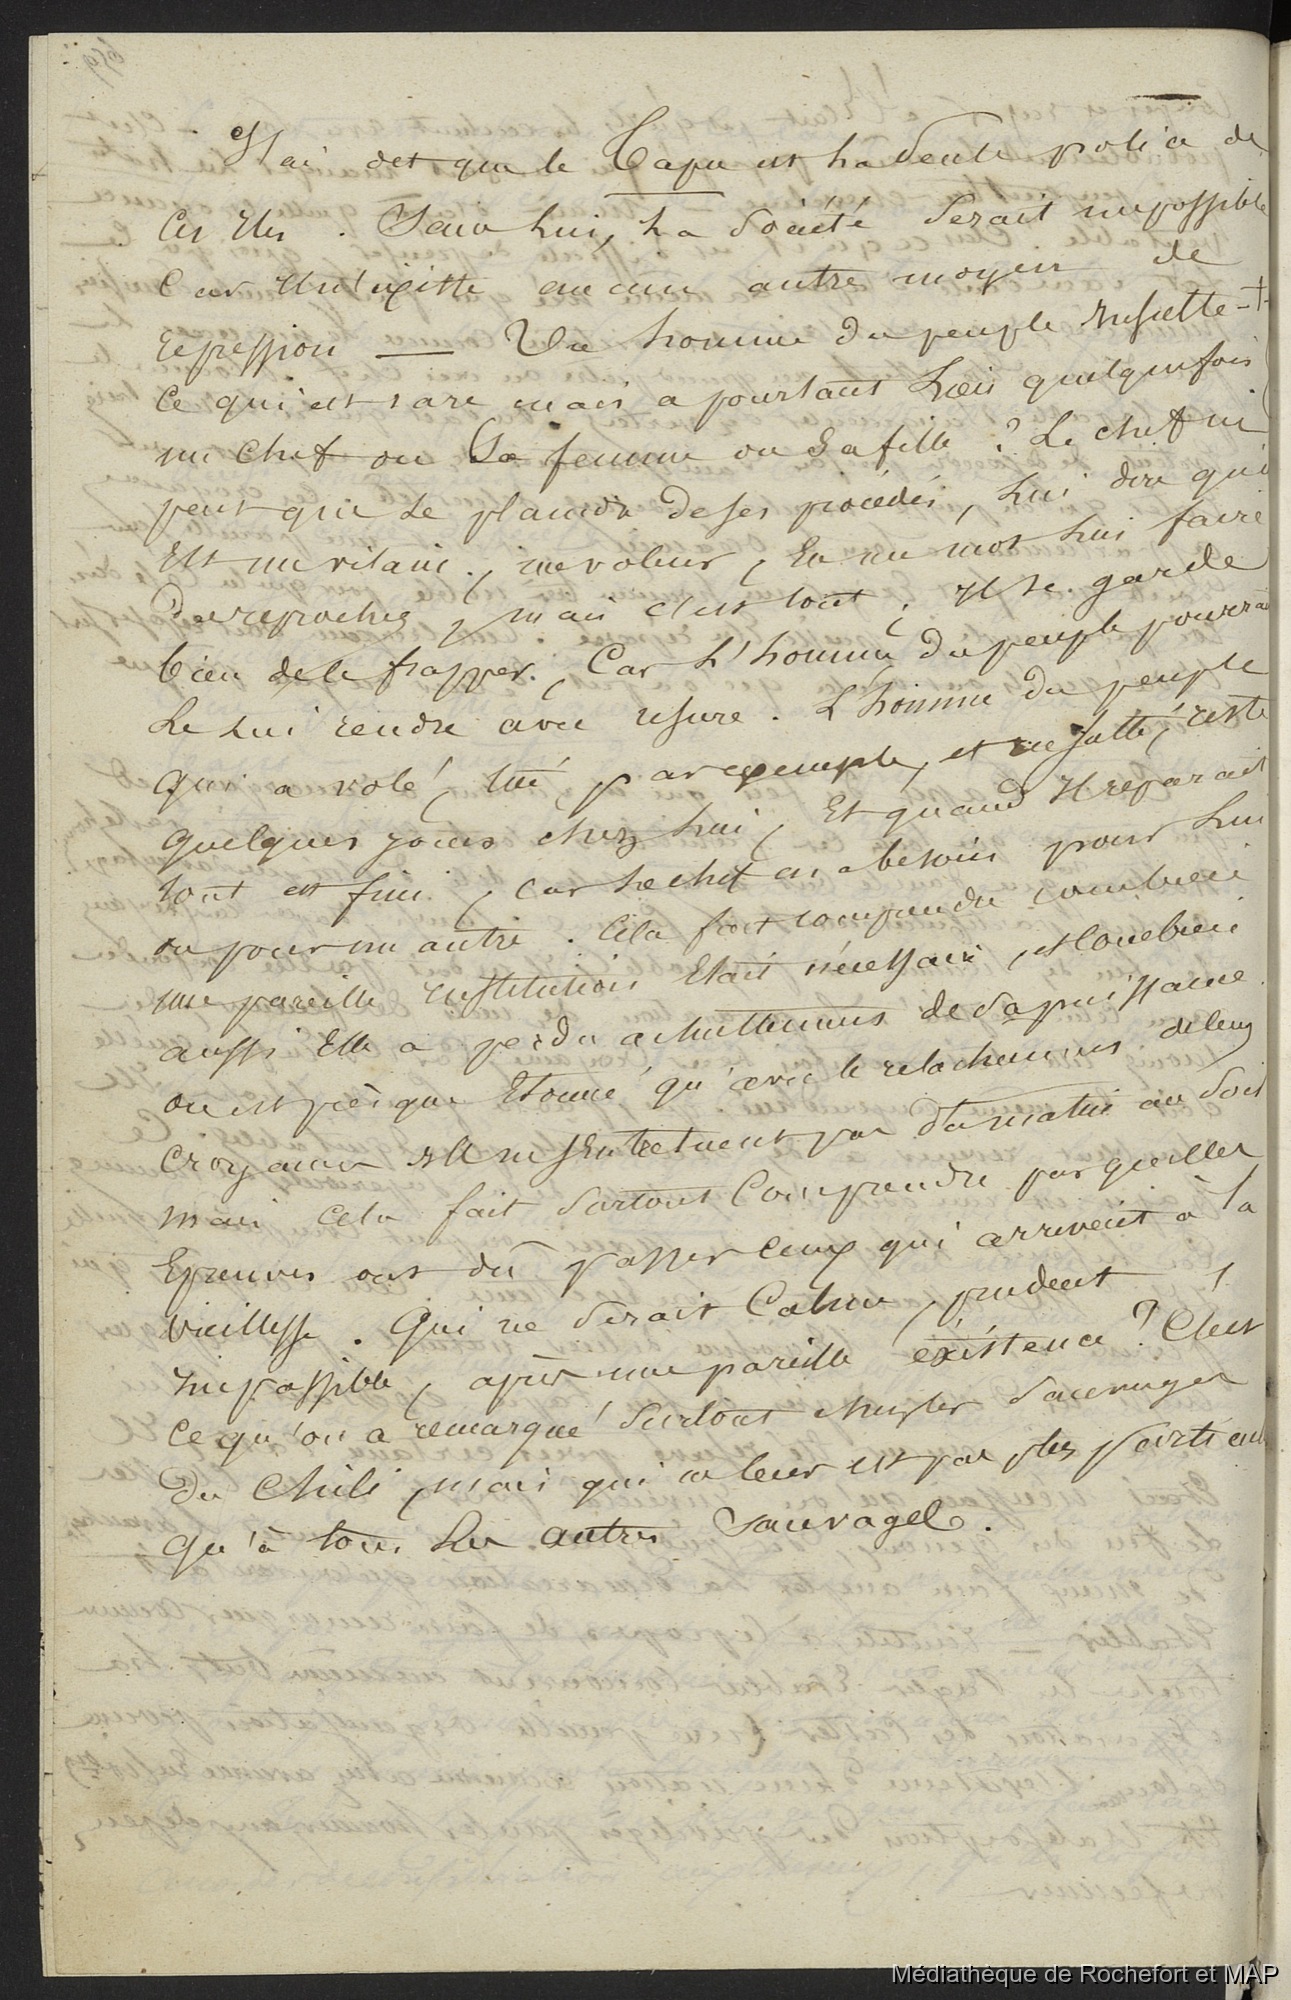 J'ai dit que le Tapu est la seule police de
ces Iles. Sans lui, la Société serait impossible
Car il n'existe aucun autre moyen de
repression — Un homme du peuple insulte-t-
Ce qui est rare mais a pourtant lieu quelquefois
un chef ou sa femme ou sa fille ? Le chef ne
peut que se plaindre de ses procédés, lui dire qu'i
Est un vilain, un voleur, En un mot lui faire
des reproches, mais c'est tout ; il se garde
bien de le frapper, Car l'homme du peuple pourrai
le lui rendre avec usure. L'homme du peuple
qui a volé, tué, par exemple, et insulté, reste
quelques jours chez lui, Et quand il reparait
tout est fini, car le chef en a besoin pour lui
ou pour un autre. Cela fait comprendre combien
une pareille institution Etait nécessaire, et combien
aussi Elle a perdu actuellement de sa puissance.
on est presque Etonné qu'avec le relachement de leurs
croyances ils ne s'entretuent pas du matin au soir
mais cela fait surtout Comprendre par quelles
Epreuves ont dû passer ceux qui arrivent à la
vieillesse. Qui ne serait Calme, prudent,
impassible, après une pareille existence ? C'est
ce qu'on a remarqué surtout chez les sauvages
du Chili, mais qui ne leur est pas plus particul
qu'à tous les autres sauvages.
Médiathèque de Rochefort et MAP